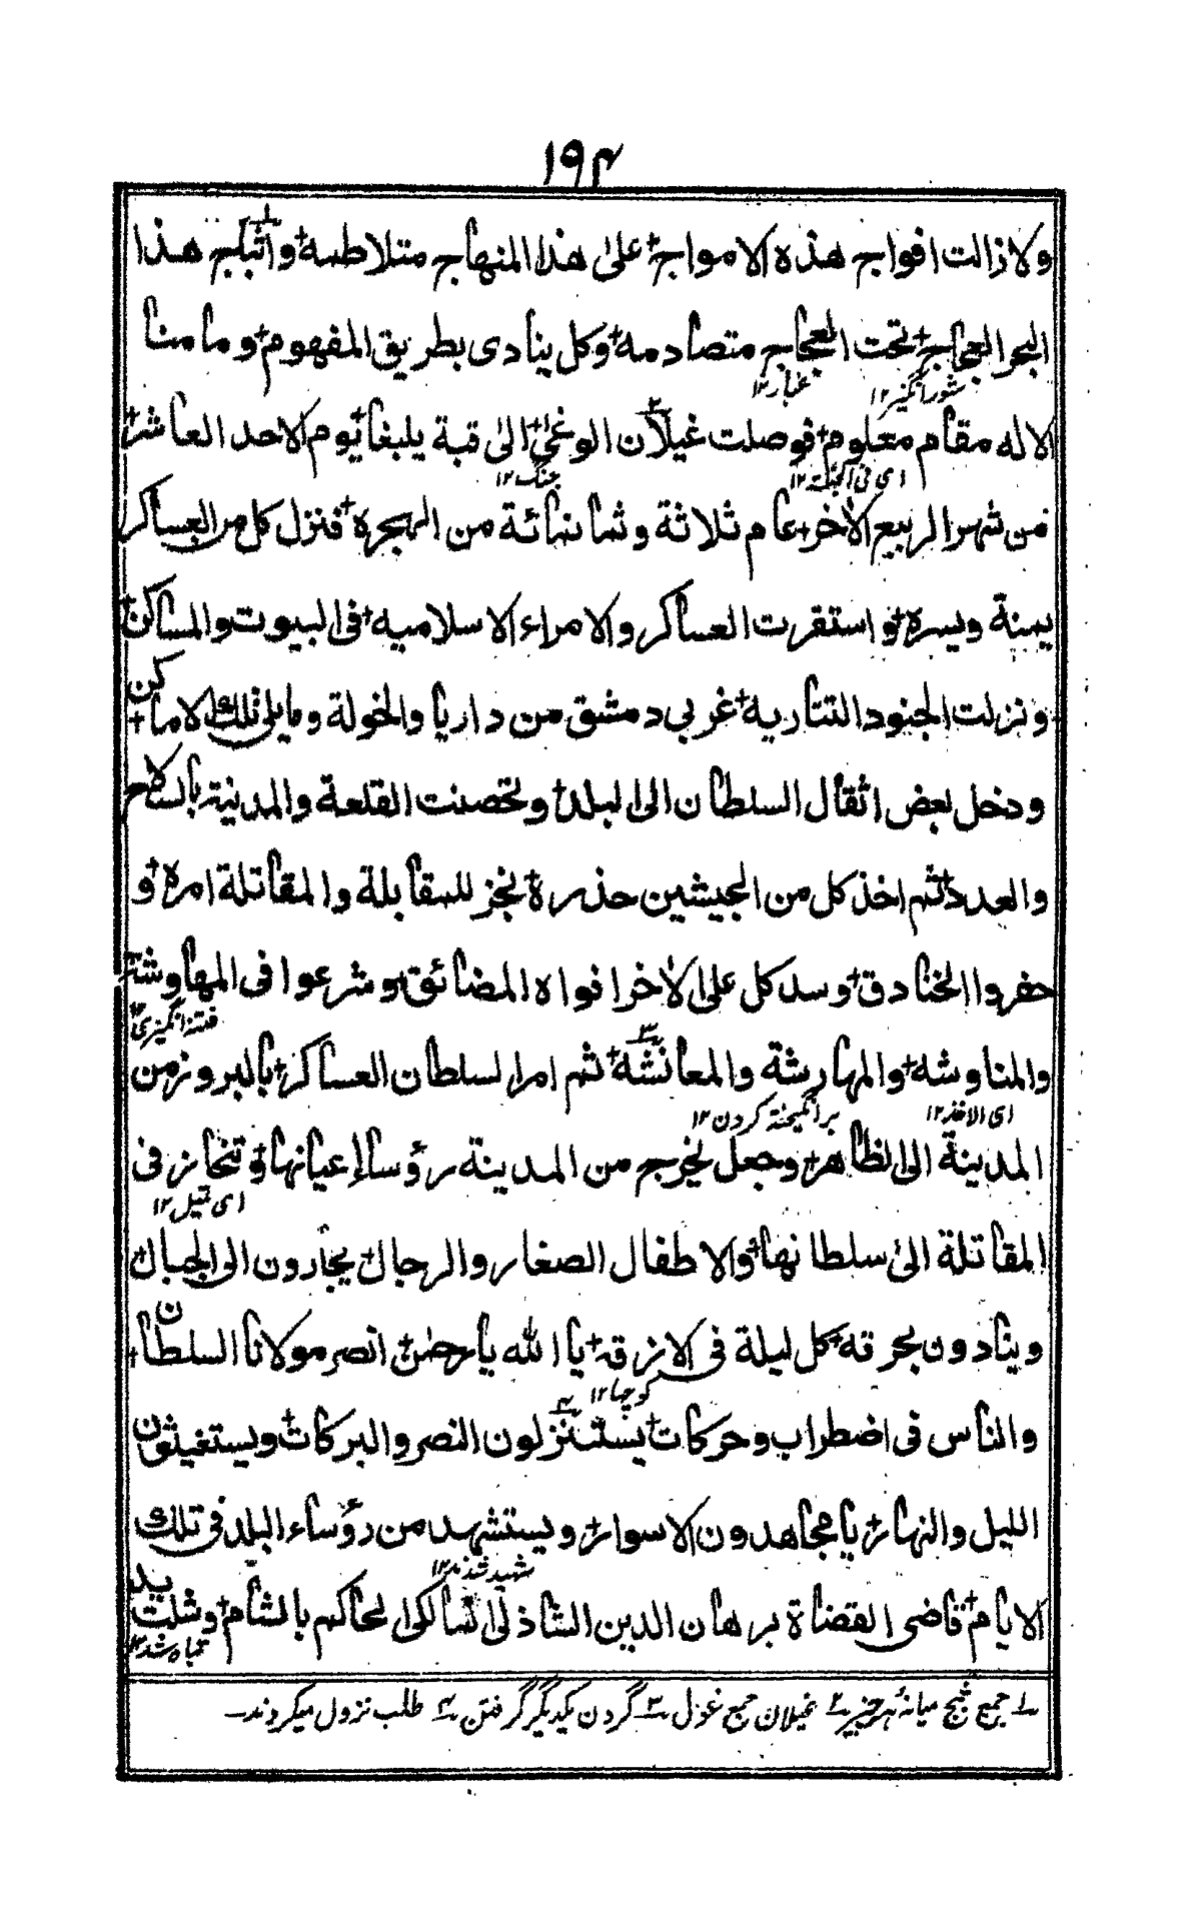 ١٩٤
ولا زالت افواج هذه الامواج على هذا المنهاج متلاطمة واثباج هذا
البحر العجاج تحت العجاج متصادمه وكل ينادى بطريق المفهوم وما منا
شور انگیز ١٢ غبار ١٢
الا له مقام معلوم فوصلت غيلان الوغى الى قبة يلبغا يوم الاحد العاشر
جنگ ١٢
من شهر الربيع الاخر عام ثلاثة وثمانمائة من الهجرة فنزل كل من العساكر
يمنة ويسرة واستقرت العساكر والامراء الاسلاميه فى البيوت والمساكن
ونزلت الجنود التتاريه غربي دمشق من داريا والخولة وما يلى تلك الاماكن
ودخل بعض اثقال السلطان الى البلد وتحصنت القلعة والمدينة بالسلاح
والعدد ثم اخذ كل من الجيشين حذره نجز للمقابلة والمقاتلة امره و
حفروا الخنادق وسد كل على الاخر افواه المضائق وشرعوا فى المهاوشة
فتنه انگیزی ١٢
والمناوشه والمهارشة والمعانشه ثم امر السلطان العساكر بالبروز من
اى الاخذ ١٢ برانگیخته کردن ١٢
المدينة الى الظاهر وجعل يخرج من المدينة رؤسا اعيانها وتتحايز فى
المقاتلة الى سلطانها والاطفال الصغار والرجال يجأرون الى الجبال
وينادون بحرقه كل ليلة فى الازقه يا الله يا رحمن انصر مولانا السلطان
کوچها ١٢
والناس فى اضطراب وحركات يستنزلون النصر والبركات ويستغيثون
الليل والنهار يا مجاهدون الاسوار ويستشهد من رؤساء البلد فى تلك
شهید شدند ١٢
الايام قاضى القضاة برهان الدين الشاذلى المالكى الحاكم بالشام وشلت يد
تباه شد ١٢
١ جمع ثبج میانۀ هر چیز ٢ غیلان جمع غول ٣ گردن یکدیگر گرفتن ٤ طلب نزول میکردند